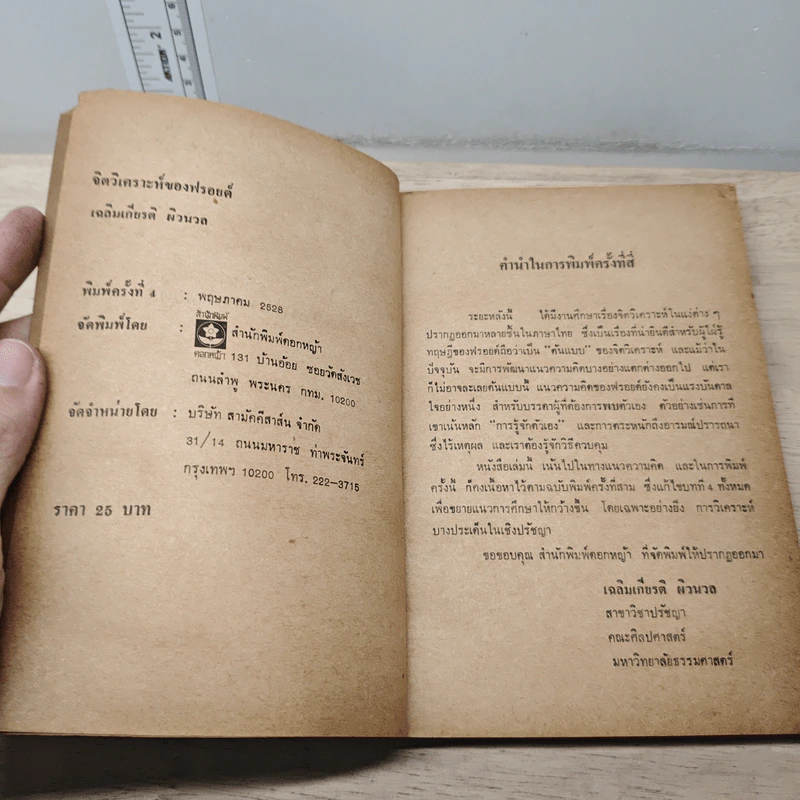 จิตวิเคราะห์ของฟรอยด์
เฉลิมเกียรติ ผิวนวล
พิมพ์ครั้งที่ 4 : พฤษภาคม 2528
จัดพิมพ์โดย : สำนักพิมพ์ ดอกหญ้า สำนักพิมพ์ดอกหญ้า
131 บ้านอ้อย ซอยวัดสังเวช
ถนนลำพู พระนคร กทม. 10200
จัดจำหน่ายโดย : บริษัท สามัคคีสาส์น จำกัด
31/14 ถนนมหาราช ท่าพระจันทร์
กรุงเทพฯ 10200 โทร. 222-3715
ราคา 25 บาท
คำนำในการพิมพ์ครั้งที่สี่
ระยะหลังนี้ ได้มีงานศึกษาเรื่องจิตวิเคราะห์ในแง่ต่าง ๆ
ปรากฏออกมาหลายชิ้นในภาษาไทย ซึ่งเป็นเรื่องที่น่ายินดีสำหรับผู้ใฝ่รู้
ทฤษฎีของฟรอยด์ถือว่าเป็น "ต้นแบบ" ของจิตวิเคราะห์ และแม้ว่าใน
ปัจจุบัน จะมีการพัฒนาแนวความคิดบางอย่างแตกต่างออกไป แต่เรา
ก็ไม่อาจละเลยต้นแบบนี้ แนวความคิดของฟรอยด์ยังคงเป็นแรงบันดาล
ใจอย่างหนึ่ง สำหรับบรรดาผู้ที่ต้องการพบตัวเอง ตัวอย่างเช่นการที่
เขาเน้นหลัก "การรู้จักตัวเอง" และการตระหนักถึงอารมณ์ปรารถนา
ซึ่งไร้เหตุผล และเราต้องรู้จักวิธีควบคุม
หนังสือเล่มนี้ เน้นไปในทางแนวความคิด และในการพิมพ์
ครั้งนี้ ก็คงเนื้อหาไว้ตามฉบับพิมพ์ครั้งที่สาม ซึ่งแก้ไขบทที่ 4 ทั้งหมด
เพื่อขยายแนวการศึกษาให้กว้างขึ้น โดยเฉพาะอย่างยิ่ง การวิเคราะห์
บางประเด็นในเชิงปรัชญา
ขอขอบคุณ สำนักพิมพ์ดอกหญ้า ที่จัดพิมพ์ให้ปรากฏออกมา
เฉลิมเกียรติ ผิวนวล
สาขาวิชาปรัชญา
คณะศิลปศาสตร์
มหาวิทยาลัยธรรมศาสตร์